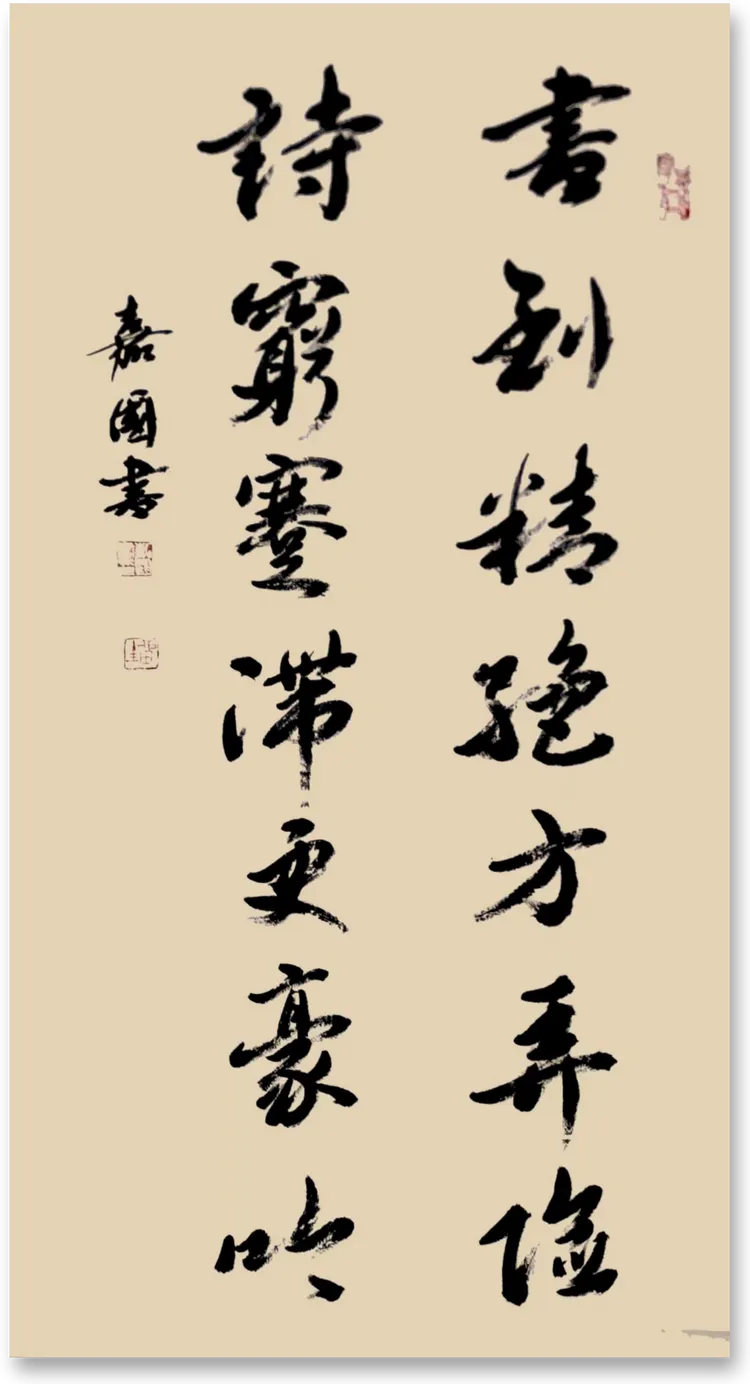 書到精絕方弄險
詩窮蹇滯更豪吟
嘉國書